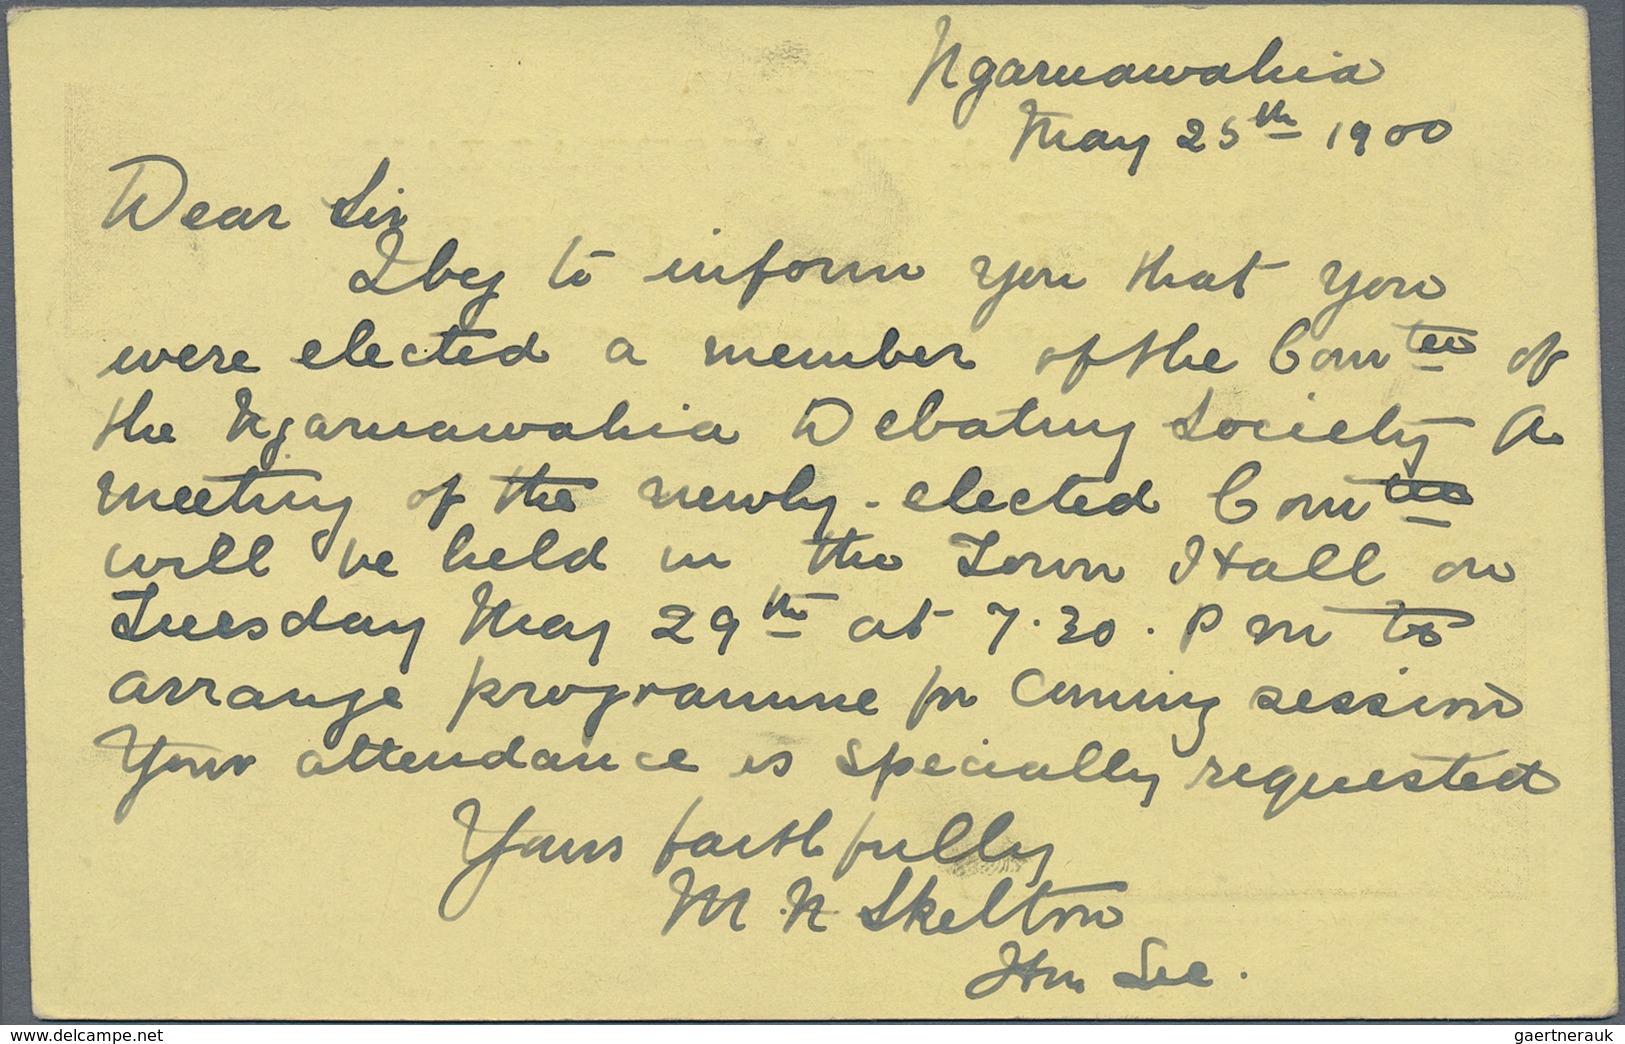 Ngaruawahia
May 25th 1900
Dear Sir
I beg to inform you that you
were elected a member of the Comtee of
the Ngaruawahia Debating Society A
meeting of the newly-elected Comtee
will be held in the Town Hall on
Tuesday May 29th at 7.30. P m to
arrange programme for coming session
Your attendance is specially requested
Yours faithfully
M. N Skelton
Hon Sec.
www.delcampe.net
gaertnerauk